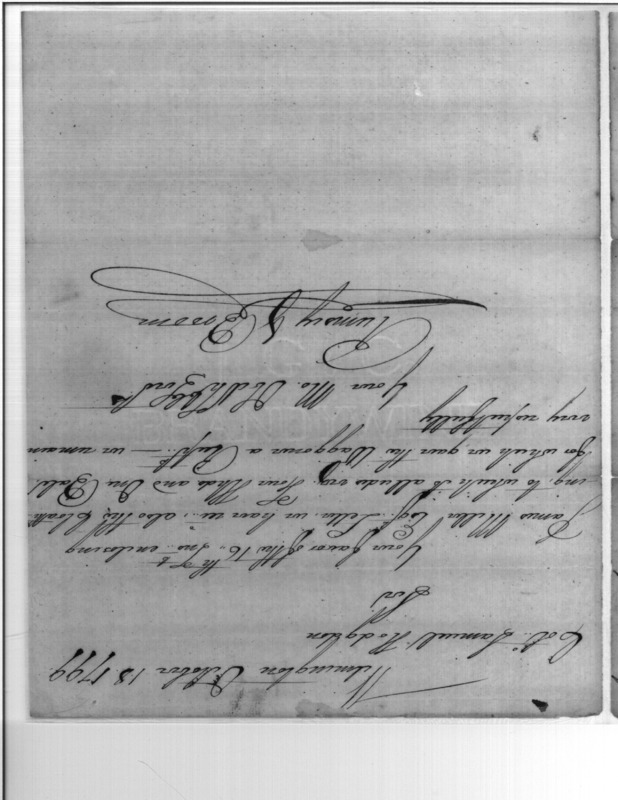 Wilmington October 18 1799
Colo. Samuel Hodgdon
Sir
Your favor of the 16th Inst. enclosing
James Miller Esqr. Letter we have recd. also the Cloath
ing to which it alludes viz Four Hhds and One Bale
for which we gave the Waggoner a Rect. — we remain
very respectfully
Your Mo. Obt Hble Srs
Rumsey & Broom